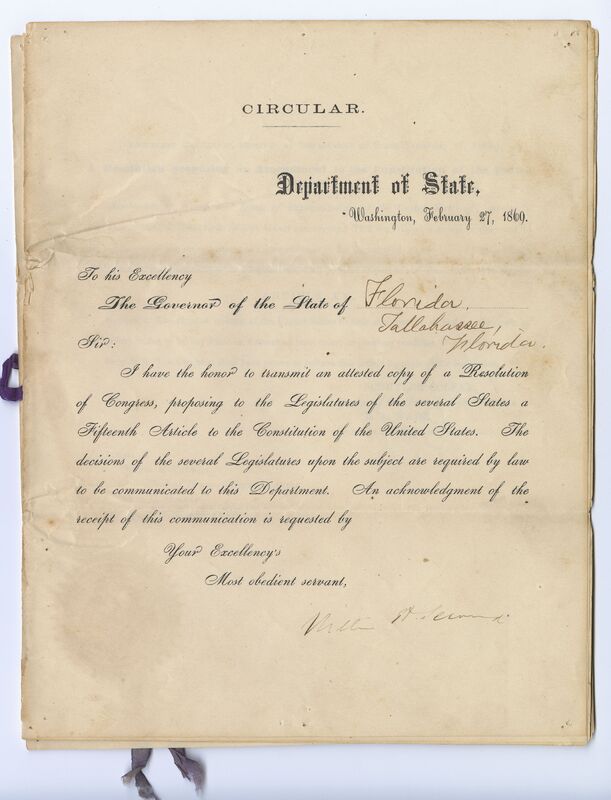 CIRCULAR.
Department of State,
Washington, February 27, 1869.
To his Excellency
The Governor of the State of Florida.
Tallahassee,
Florida.
Sir:
I have the honor to transmit an attested copy of a Resolution
of Congress, proposing to the Legislatures of the several States a
Fifteenth Article to the Constitution of the United States. The
decisions of the several Legislatures upon the subject are required by law
to be communicated to this Department. An acknowledgment of the
receipt of this communication is requested by
Your Excellency's
Most obedient servant,
William H Seward